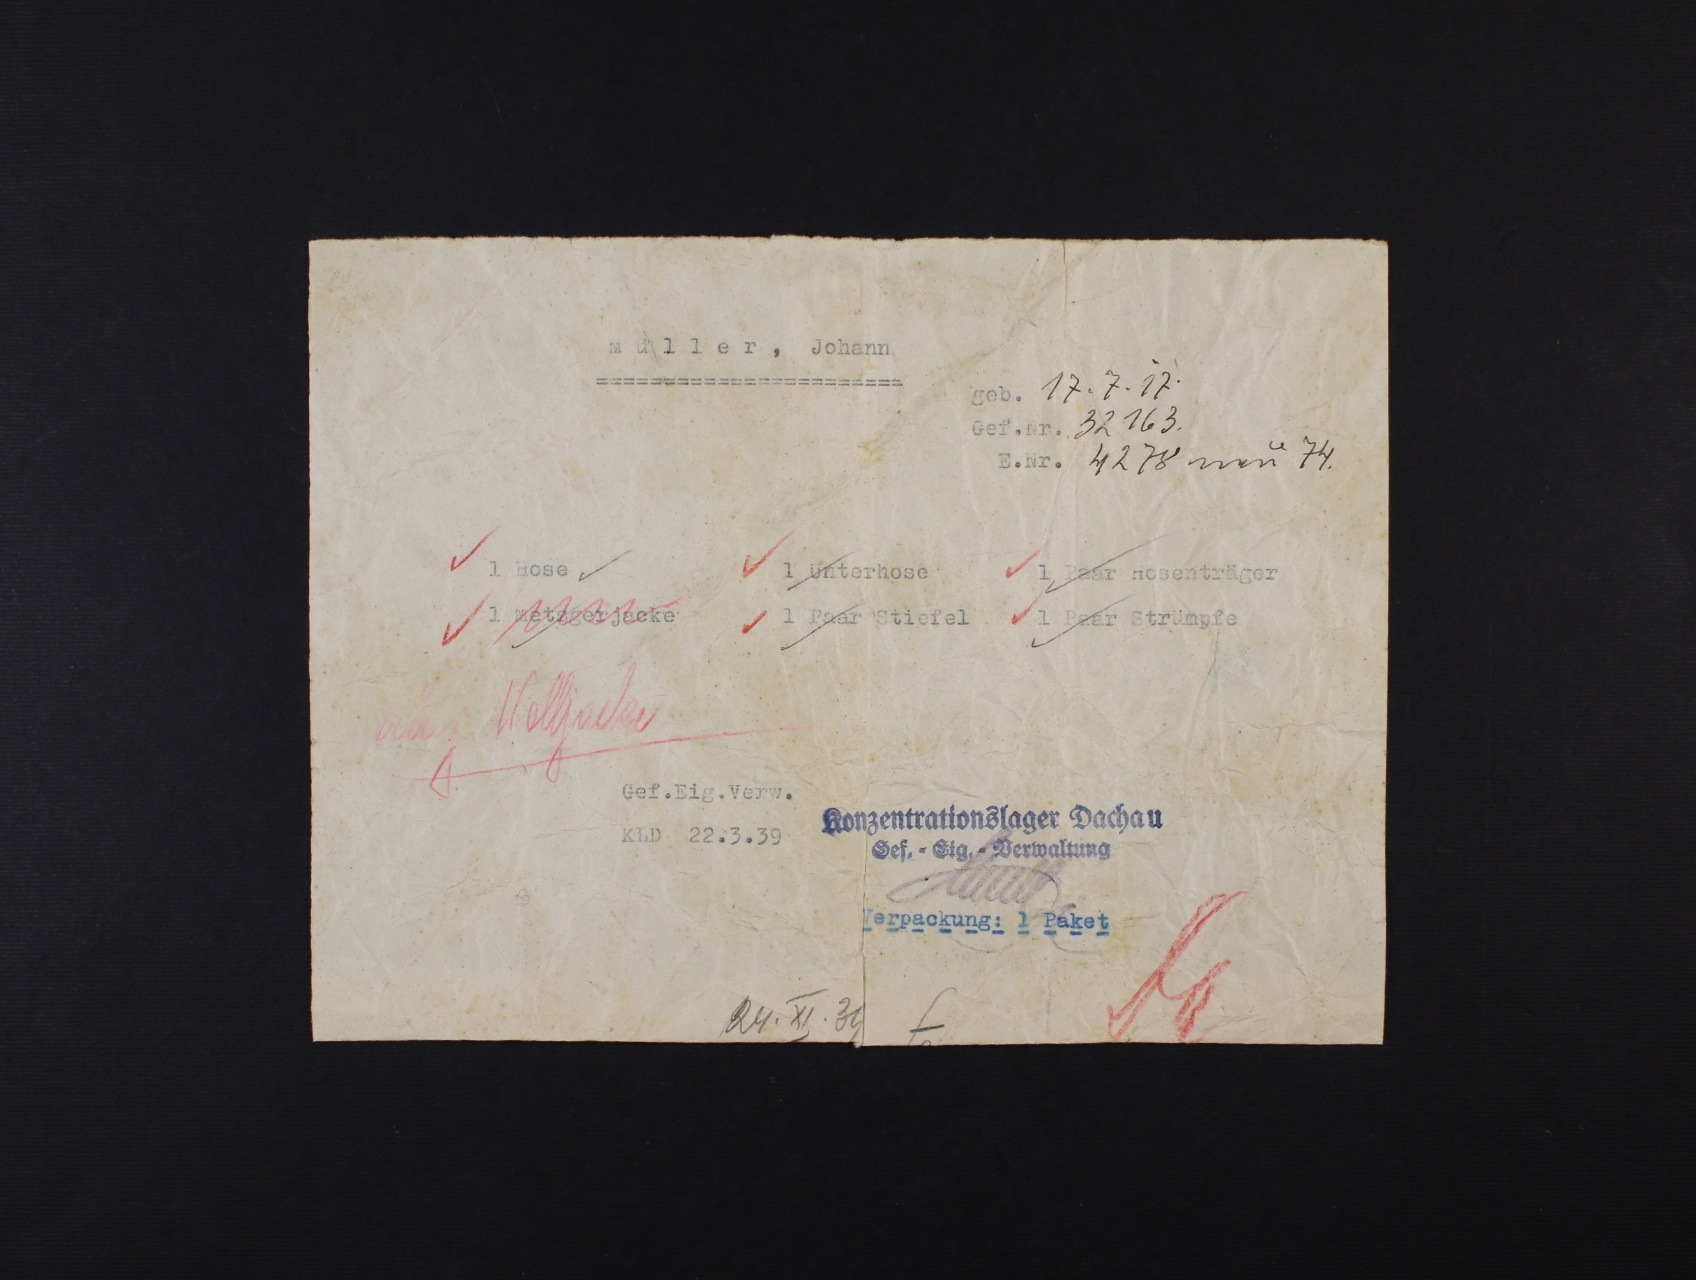 Müller, Johann
geb. 17.7.17.
Gef.Nr. 32163.
E.Nr. 4278 neu 74.
1 Hose 1 Unterhose 1 Paar Hosenträger
1 Metzgerjacke 1 Paar Stiefel 1 Paar Strümpfe
Wolljacke
Gef.Eig.Verw.
KLD 22.3.39
Konzentrationslager Dachau
Gef. - Eig. - Verwaltung
Verpackung: 1 Paket
24.XI.39